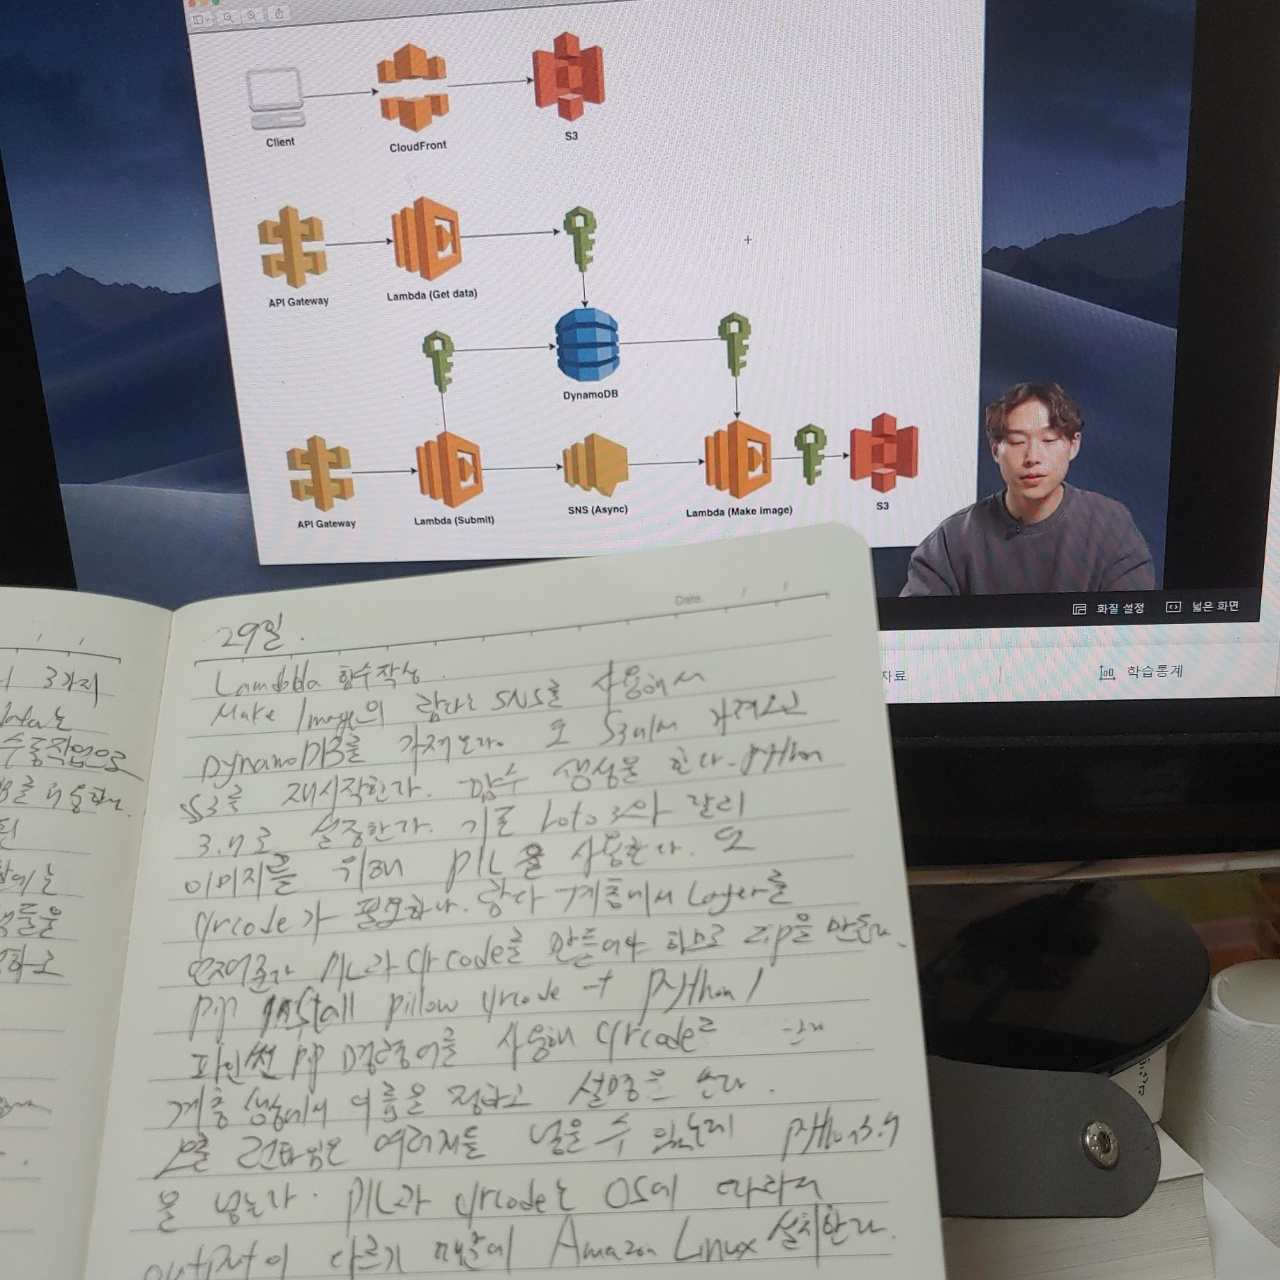 Client
CloudFront
S3
API Gateway
Lambda (Get data)
DynamoDB
API Gateway
Lambda (Submit)
SNS (Async)
Lambda (Make image)
S3
화질 설정
넓은 화면
자료
학습통계
Date.
3가지
수동작업으로
29일.
Lambda 함수작성
Make Image의 람다는 SNS를 사용해서
DynamoDB를 가져온다. 또 S3에서 가져오고
S3를 재시작한다. 함수 생성을 한다. python
3.7로 설정한다. 기존 boto3와 달리
이미지를 위해 PIL을 사용한다. 또
qrcode가 필요하다. 람다 계층에서 Layer를
PIL과 qrcode를 만들어야 하므로 zip을 만든다.
pip install pillow qrcode -t python/
파이썬 pip 명령어를 사용해 qrcode를
계층 생성에서 이름을 정하고 설명을 쓴다.
런타임은 여러개를 넣을 수 있는데 python3.7
을 넣는다. PIL과 qrcode는 OS에 따라서
output이 다르기 때문에 Amazon Linux 설치한다.